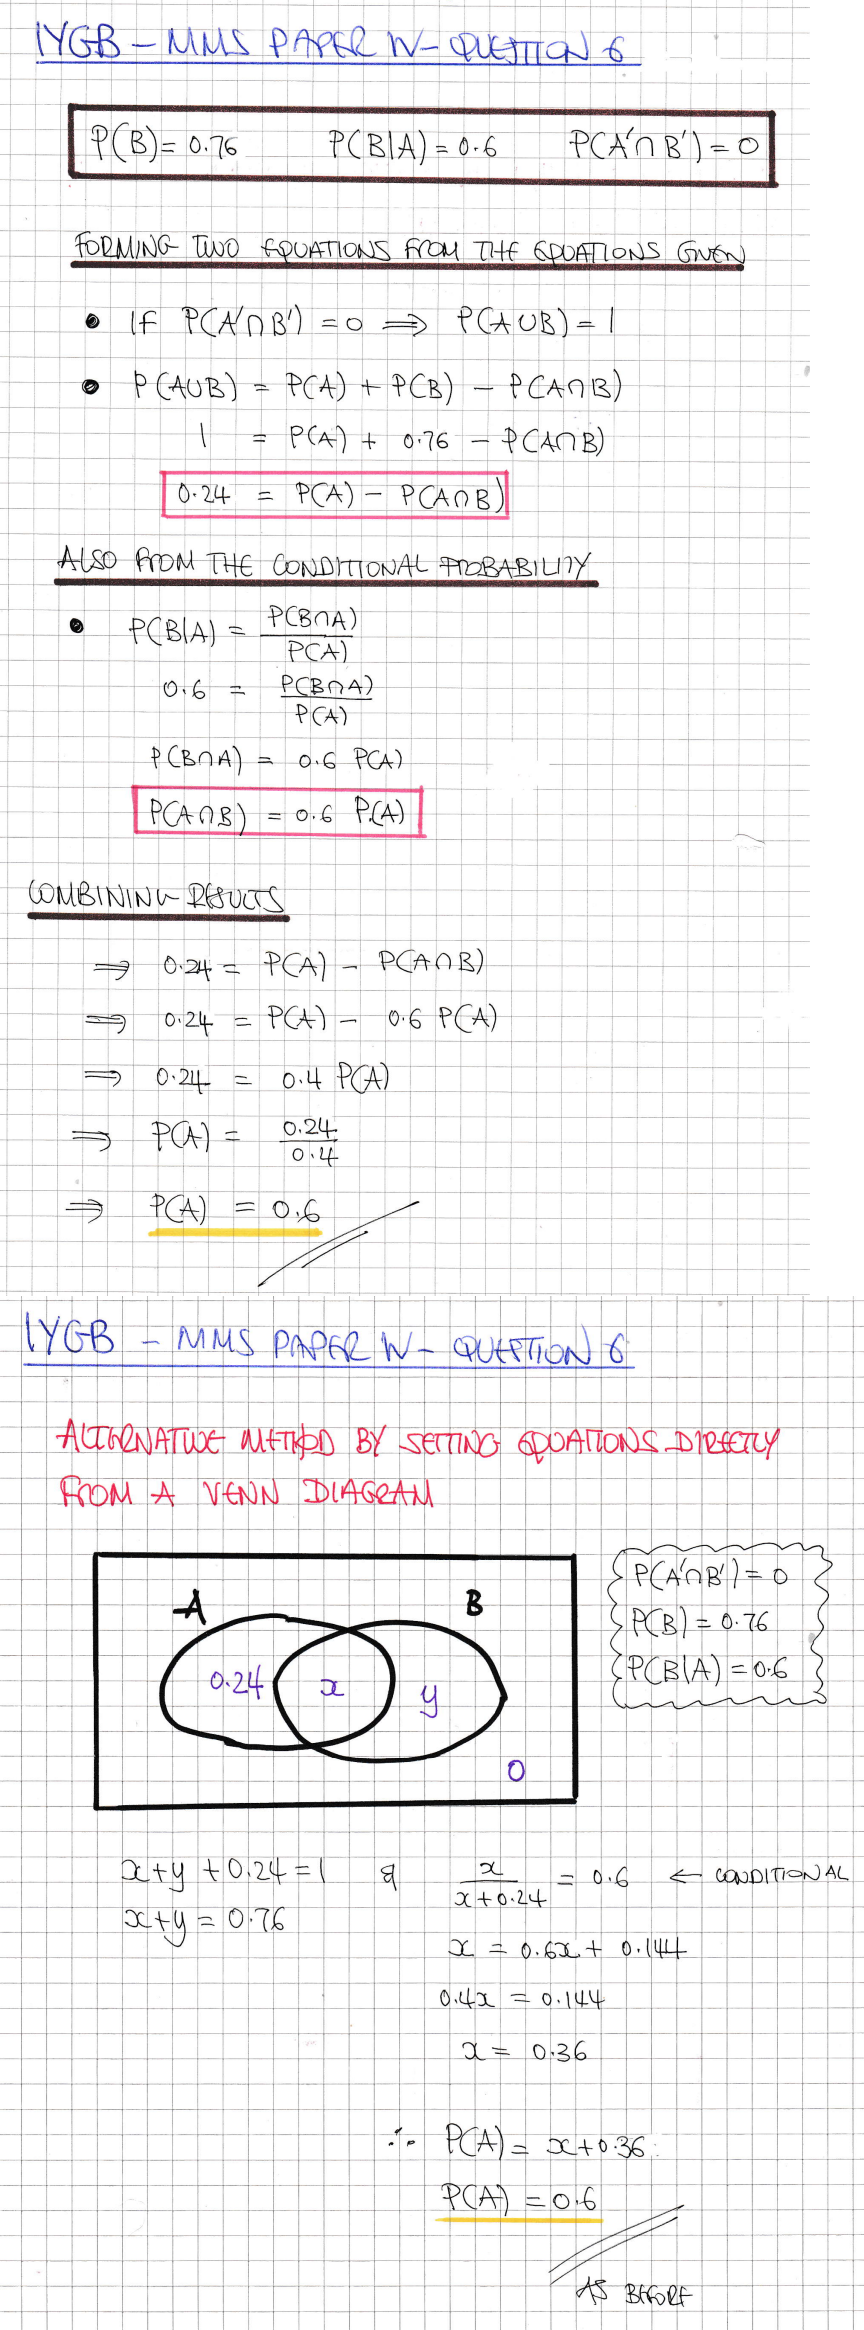 IYGB – MMS PAPER W – QUESTION 6
P(B) = 0.76 P(B|A) = 0.6 P(A'∩B') = 0
FORMING TWO EQUATIONS FROM THE EQUATIONS GIVEN
• IF P(A'∩B') = 0 ⇒ P(A∪B) = 1
• P(A∪B) = P(A) + P(B) – P(A∩B)
1 = P(A) + 0.76 – P(A∩B)
0.24 = P(A) – P(A∩B)
ALSO FROM THE CONDITIONAL PROBABILITY
• P(B|A) = P(B∩A)/P(A)
0.6 = P(B∩A)/P(A)
P(B∩A) = 0.6 P(A)
P(A∩B) = 0.6 P(A)
COMBINING RESULTS
⇒ 0.24 = P(A) – P(A∩B)
⇒ 0.24 = P(A) – 0.6 P(A)
⇒ 0.24 = 0.4 P(A)
⇒ P(A) = 0.24/0.4
⇒ P(A) = 0.6
IYGB – MMS PAPER W – QUESTION 6
ALTERNATIVE METHOD BY SETTING EQUATIONS DIRECTLY
FROM A VENN DIAGRAM
A B
0.24 x y
0
P(A'∩B') = 0
P(B) = 0.76
P(B|A) = 0.6
x+y+0.24 = 1 & x/(x+0.24) = 0.6 ← CONDITIONAL
x+y = 0.76
x = 0.6x + 0.144
0.4x = 0.144
x = 0.36
∴ P(A) = x+0.36
P(A) = 0.6
AS BEFORE